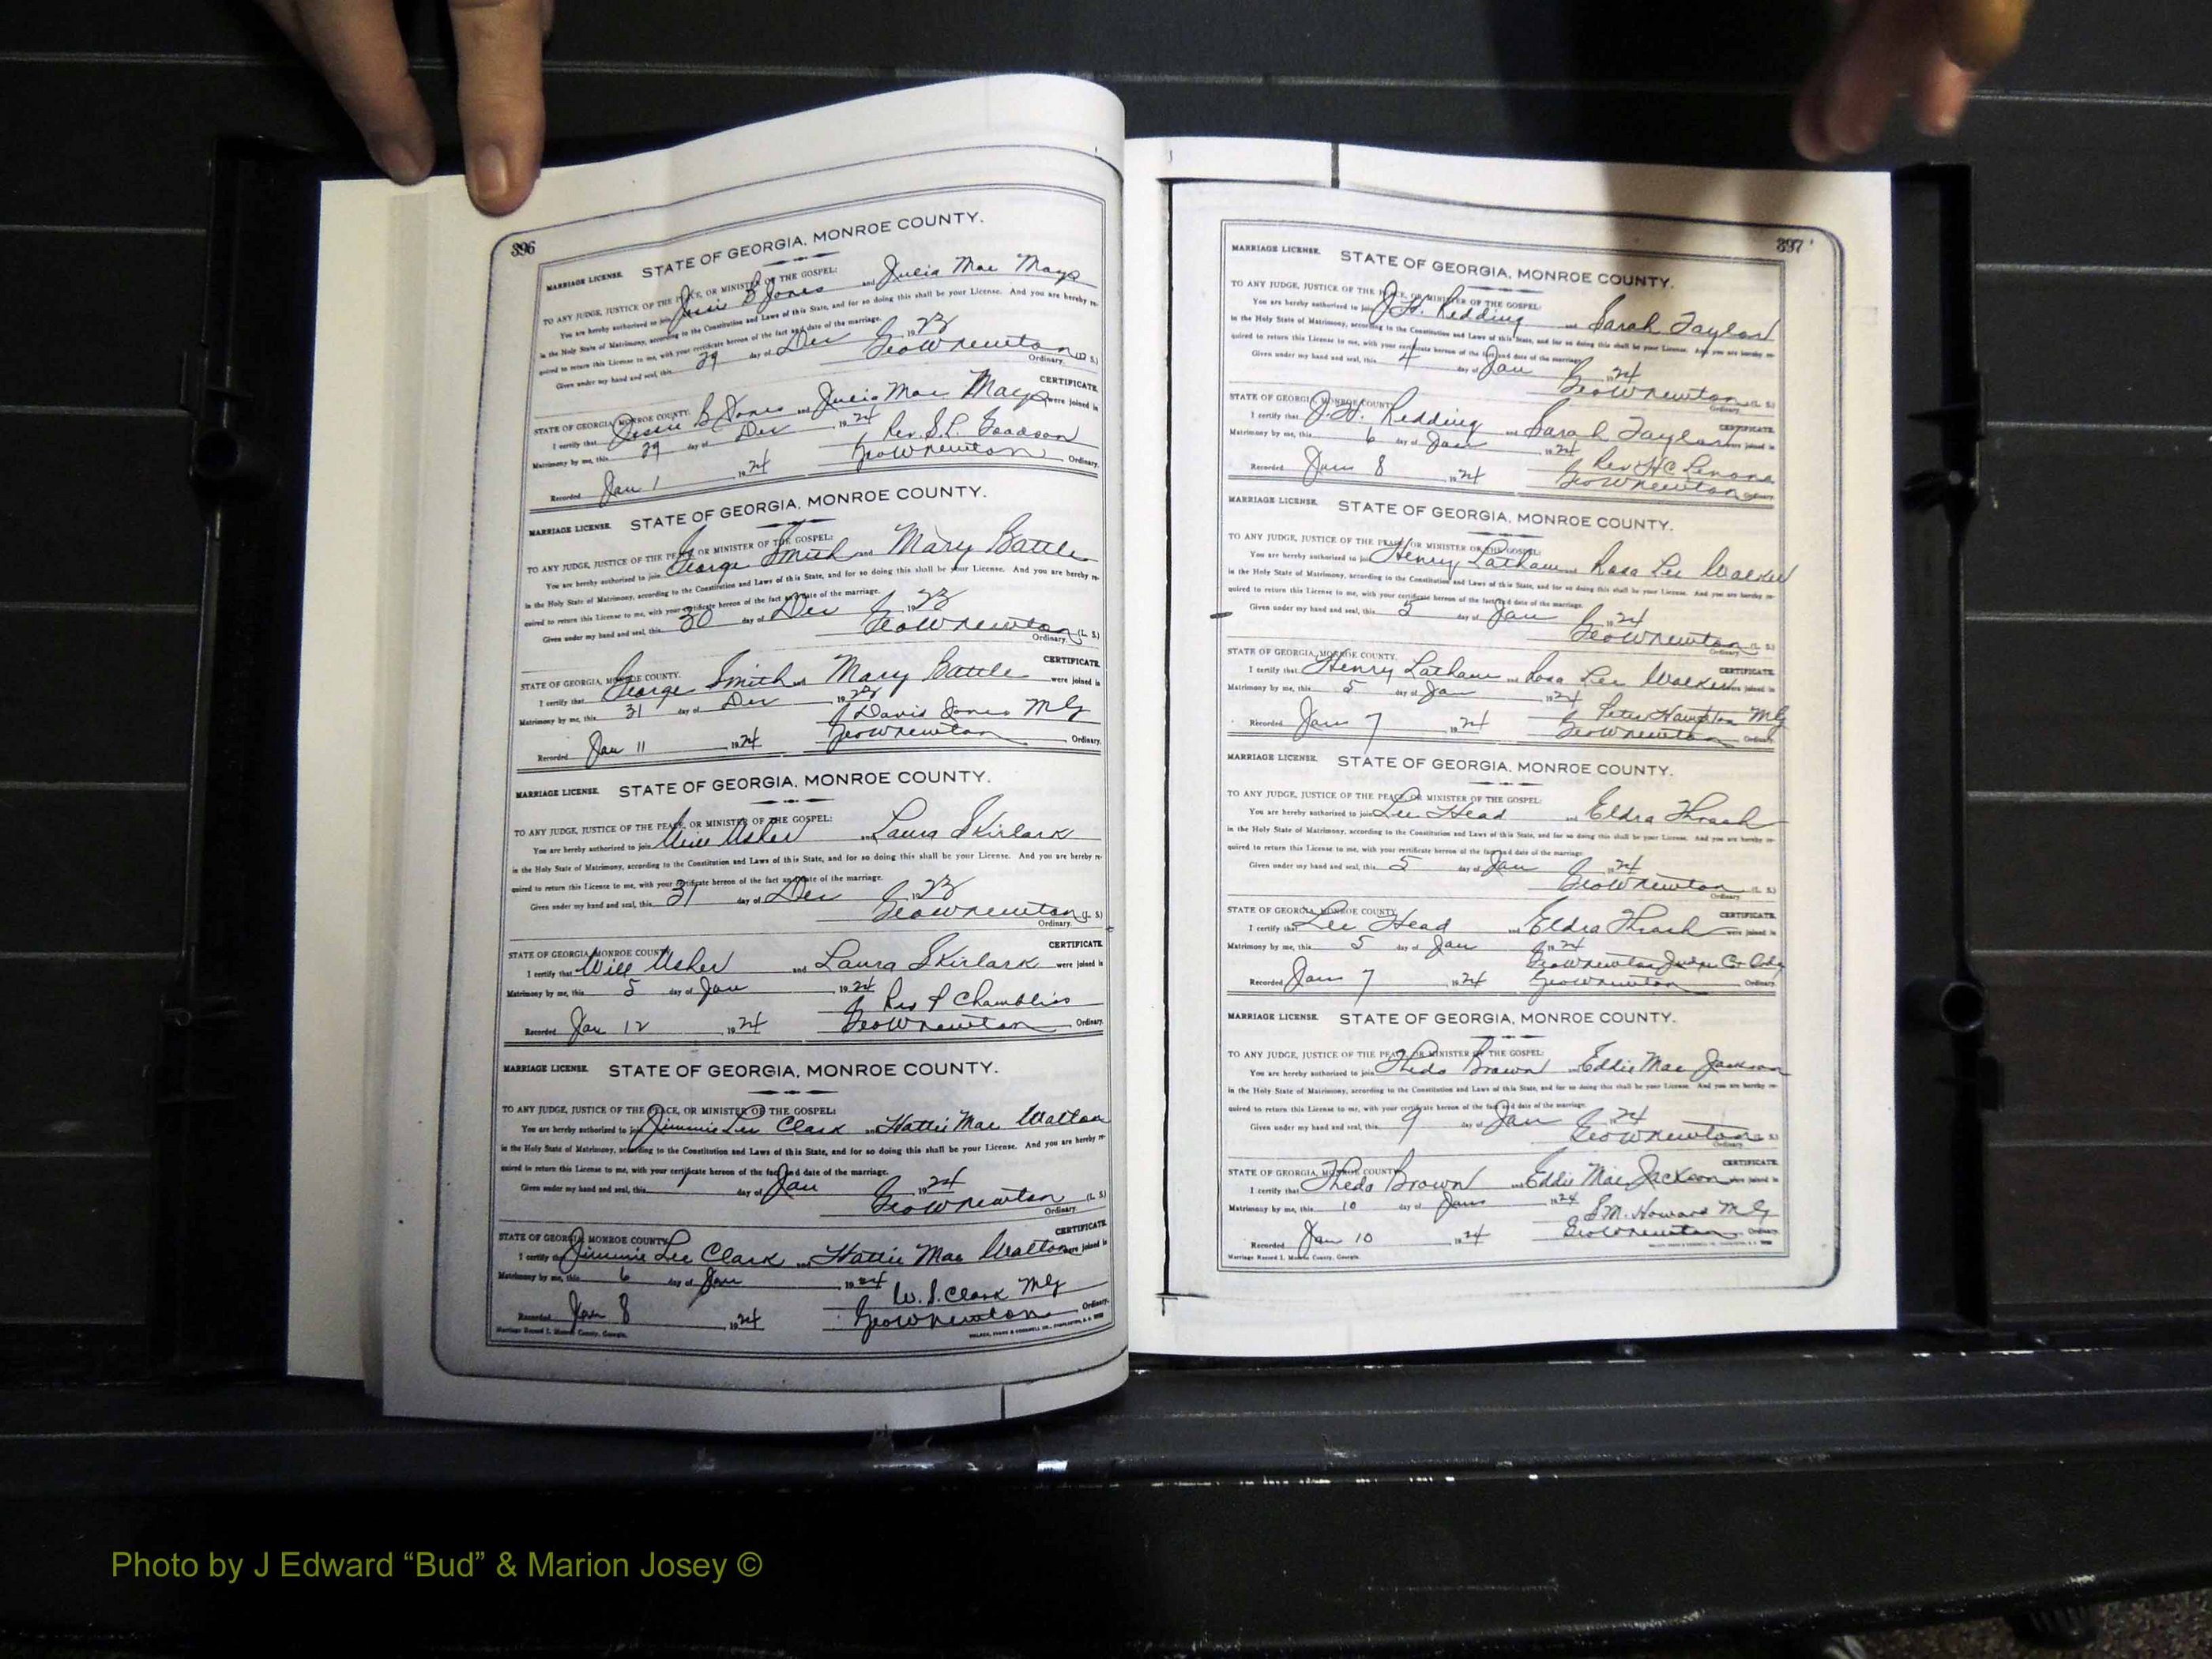 396
MARRIAGE LICENSE. STATE OF GEORGIA, MONROE COUNTY.
TO ANY JUDGE, JUSTICE OF THE PEACE, OR MINISTER OF THE GOSPEL:
You are hereby authorized to join Jessie B Jones and Julia Mae Mays
in the Holy State of Matrimony, according to the Constitution and Laws of this State, and for so doing this shall be your License. And you are hereby re-
quired to return this License to me, with your certificate hereon of the fact and date of the marriage.
Given under my hand and seal, this 29 day of Dec 1923
Geo W Newton (L. S.)
Ordinary.
STATE OF GEORGIA, MONROE COUNTY. CERTIFICATE.
I certify that Jessie B Jones and Julia Mae Mays were joined in
Matrimony by me, this 29 day of Dec 1924
Rev. S.L. Goodson
Recorded Jan 1 1924 Geo W Newton Ordinary.
MARRIAGE LICENSE. STATE OF GEORGIA, MONROE COUNTY.
TO ANY JUDGE, JUSTICE OF THE PEACE, OR MINISTER OF THE GOSPEL:
You are hereby authorized to join George Smith and Mary Battle
in the Holy State of Matrimony, according to the Constitution and Laws of this State, and for so doing this shall be your License. And you are hereby re-
quired to return this License to me, with your certificate hereon of the fact and date of the marriage.
Given under my hand and seal, this 30 day of Dec 1923
Geo W Newton (L. S.)
Ordinary.
STATE OF GEORGIA, MONROE COUNTY. CERTIFICATE.
I certify that George Smith and Mary Battle were joined in
Matrimony by me, this 31 day of Dec 1923
Davis Jones M G
Recorded Jan 11 1924 Geo W Newton Ordinary.
MARRIAGE LICENSE. STATE OF GEORGIA, MONROE COUNTY.
TO ANY JUDGE, JUSTICE OF THE PEACE, OR MINISTER OF THE GOSPEL:
You are hereby authorized to join Will Usher and Laura Skirlark
in the Holy State of Matrimony, according to the Constitution and Laws of this State, and for so doing this shall be your License. And you are hereby re-
quired to return this License to me, with your certificate hereon of the fact and date of the marriage.
Given under my hand and seal, this 31 day of Dec 1923
Geo W Newton (L. S.)
Ordinary.
STATE OF GEORGIA, MONROE COUNTY. CERTIFICATE.
I certify that Will Usher and Laura Skirlark were joined in
Matrimony by me, this 5 day of Jan 1924
Rev P Chambliss
Recorded Jan 12 1924 Geo W Newton Ordinary.
MARRIAGE LICENSE. STATE OF GEORGIA, MONROE COUNTY.
TO ANY JUDGE, JUSTICE OF THE PEACE, OR MINISTER OF THE GOSPEL:
You are hereby authorized to join Jimmie Lee Clark and Hattie Mae Walton
in the Holy State of Matrimony, according to the Constitution and Laws of this State, and for so doing this shall be your License. And you are hereby re-
quired to return this License to me, with your certificate hereon of the fact and date of the marriage.
Given under my hand and seal, this day of Jan 1924
Geo W Newton (L. S.)
Ordinary.
STATE OF GEORGIA, MONROE COUNTY. CERTIFICATE.
I certify that Jimmie Lee Clark and Hattie Mae Walton were joined in
Matrimony by me, this 6 day of Jan 1924
W. S. Clark M G
Recorded Jan 8 1924 Geo W Newton Ordinary.
Marriage Record I. Monroe County, Georgia. WALKER, EVANS & COGSWELL CO., CHARLESTON, S. C.
397
MARRIAGE LICENSE. STATE OF GEORGIA, MONROE COUNTY.
TO ANY JUDGE, JUSTICE OF THE PEACE, OR MINISTER OF THE GOSPEL:
You are hereby authorized to join J.H. Redding and Sarah Taylor
in the Holy State of Matrimony, according to the Constitution and Laws of this State, and for so doing this shall be your License. And you are hereby re-
quired to return this License to me, with your certificate hereon of the fact and date of the marriage.
Given under my hand and seal, this 4 day of Jan 1924
Geo W Newton (L. S.)
Ordinary.
STATE OF GEORGIA, MONROE COUNTY. CERTIFICATE.
I certify that J.H. Redding and Sarah Taylor were joined in
Matrimony by me, this 6 day of Jan 1924
Rev H C
Recorded Jan 8 1924 Geo W Newton Ordinary.
MARRIAGE LICENSE. STATE OF GEORGIA, MONROE COUNTY.
TO ANY JUDGE, JUSTICE OF THE PEACE, OR MINISTER OF THE GOSPEL:
You are hereby authorized to join Henry Latham and Rosa Lee Walker
in the Holy State of Matrimony, according to the Constitution and Laws of this State, and for so doing this shall be your License. And you are hereby re-
quired to return this License to me, with your certificate hereon of the fact and date of the marriage.
Given under my hand and seal, this 5 day of Jan 1924
Geo W Newton (L. S.)
Ordinary.
STATE OF GEORGIA, MONROE COUNTY. CERTIFICATE.
I certify that Henry Latham and Rosa Lee Walker were joined in
Matrimony by me, this 5 day of Jan 1924
Peter Hampton M G
Recorded Jan 7 1924 Geo W Newton Ordinary.
MARRIAGE LICENSE. STATE OF GEORGIA, MONROE COUNTY.
TO ANY JUDGE, JUSTICE OF THE PEACE, OR MINISTER OF THE GOSPEL:
You are hereby authorized to join Lee Head and Eldra Thrash
in the Holy State of Matrimony, according to the Constitution and Laws of this State, and for so doing this shall be your License. And you are hereby re-
quired to return this License to me, with your certificate hereon of the fact and date of the marriage.
Given under my hand and seal, this 5 day of Jan 1924
Geo W Newton (L. S.)
Ordinary.
STATE OF GEORGIA, MONROE COUNTY. CERTIFICATE.
I certify that Lee Head and Eldra Thrash were joined in
Matrimony by me, this 5 day of Jan 1924
Geo W Newton Judge Ct Ord
Recorded Jan 7 1924 Geo W Newton Ordinary.
MARRIAGE LICENSE. STATE OF GEORGIA, MONROE COUNTY.
TO ANY JUDGE, JUSTICE OF THE PEACE, OR MINISTER OF THE GOSPEL:
You are hereby authorized to join Thedo Brown and Eddie Mae Jackson
in the Holy State of Matrimony, according to the Constitution and Laws of this State, and for so doing this shall be your License. And you are hereby re-
quired to return this License to me, with your certificate hereon of the fact and date of the marriage.
Given under my hand and seal, this 9 day of Jan 1924
Geo W Newton (L. S.)
Ordinary.
STATE OF GEORGIA, MONROE COUNTY. CERTIFICATE.
I certify that Thedo Brown and Eddie Mae Jackson were joined in
Matrimony by me, this 10 day of Jan 1924
S.M. Howard M G
Recorded Jan 10 1924 Geo W Newton Ordinary.
Marriage Record I. Monroe County, Georgia.
Photo by J Edward “Bud” & Marion Josey ©